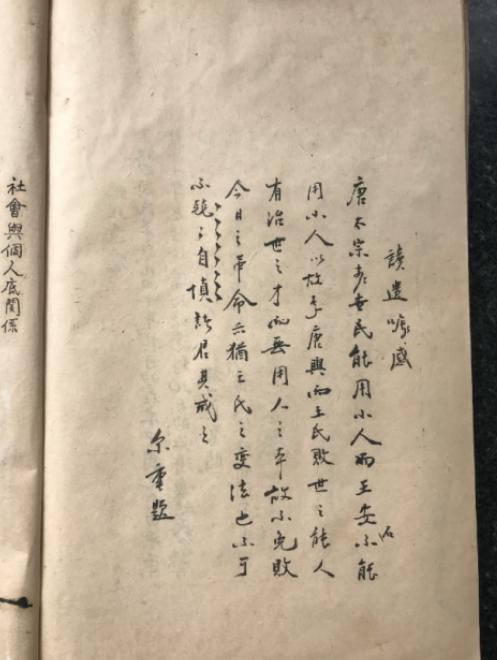 讀遺囑感
唐太宗李世民能用小人而王安石不能
用小人以故李唐興而王氏敗世之能人
有治世之才而無用人之 故不免敗
今日之革命亦猶王氏之變法也不可
不 自慎 君其戒之
尔重題
社會與個人底關係